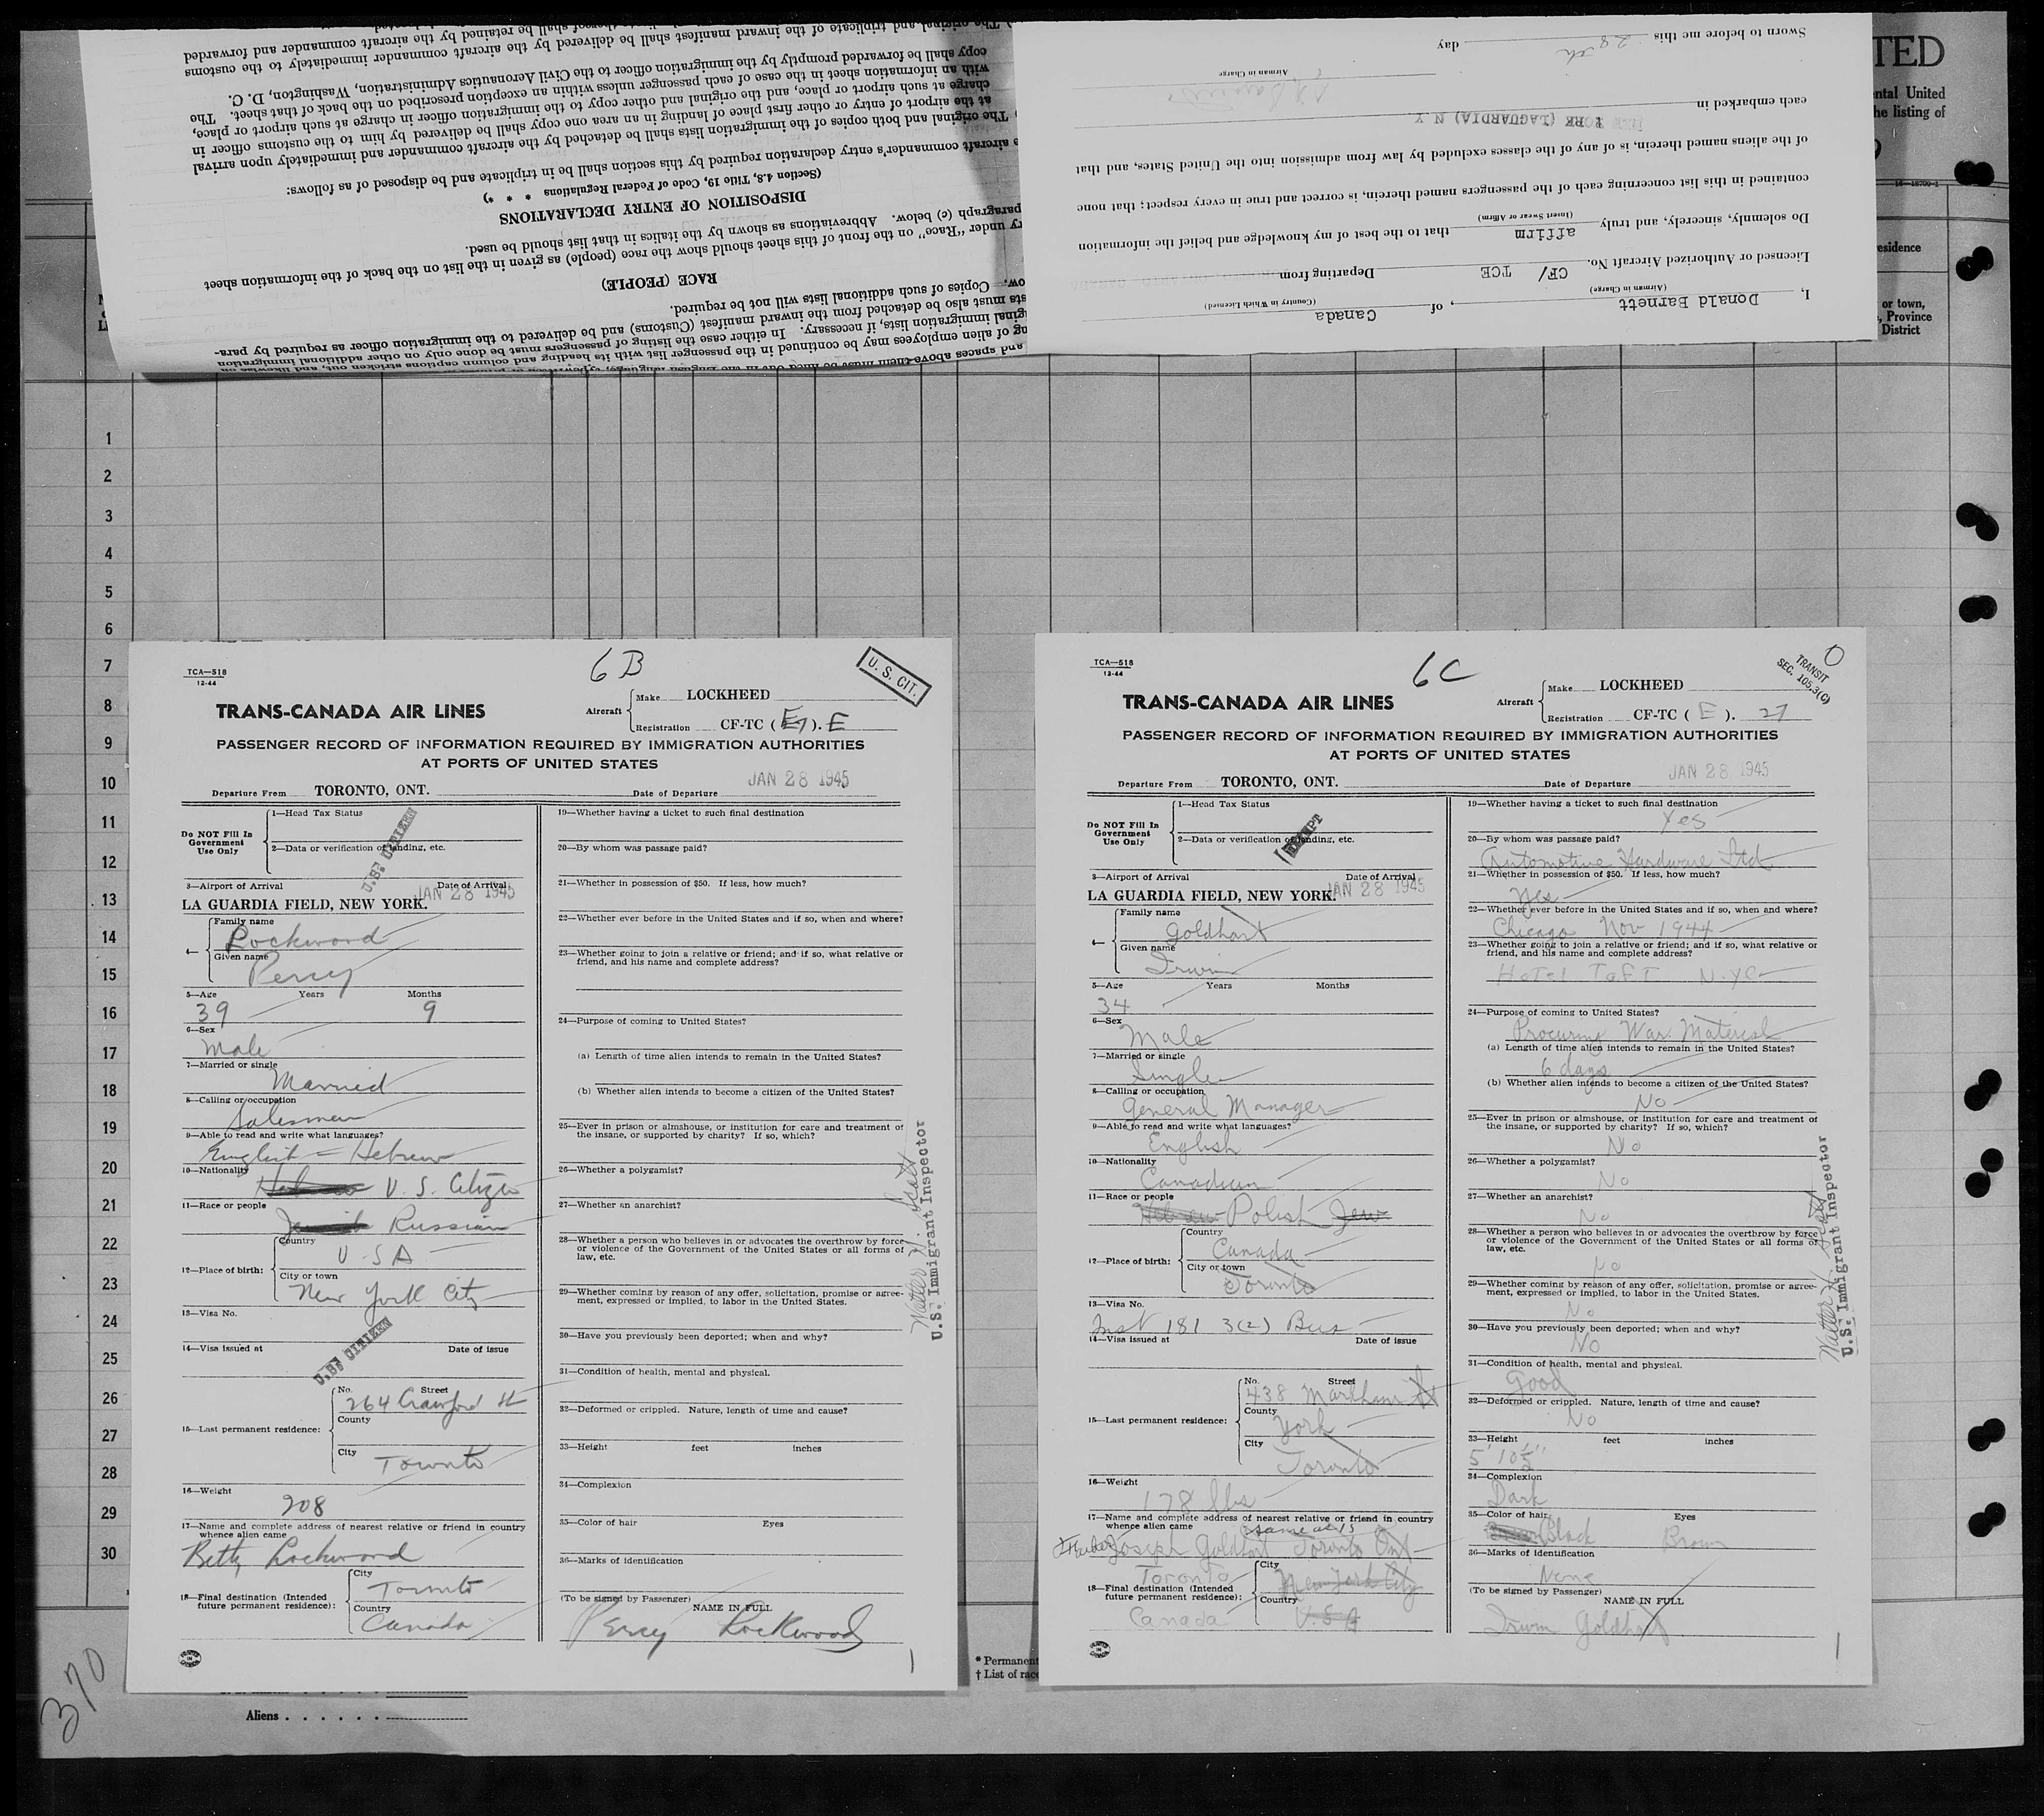 The original and triplicate of the inward manifest shall be delivered by the aircraft commander immediately to the customs
copy shall be forwarded promptly by the immigration officer to the Civil Aeronautics Administration, Washington, D. C.
with an information sheet in the case of each passenger unless within an exception prescribed on the back of that sheet. The
charge at such airport or place, and the original and other copy to the immigration officer in charge at such airport or place,
at the airport of entry or other first place of landing in an area one copy shall be delivered by him to the customs officer in
The original and both copies of the immigration lists shall be detached by the aircraft commander and immediately upon arrival
e aircraft commander's entry declaration required by this section shall be in triplicate and be disposed of as follows:
(Section 4.8, Title 19, Code of Federal Regulations * * *)
DISPOSITION OF ENTRY DECLARATIONS
paragraph (c) below. Abbreviations as shown by the italics in that list should be used.
ry under "Race" on the front of this sheet should show the race (people) as given in the list on the back of the information sheet
RACE (PEOPLE)
ow. Copies of such additional lists will not be required.
sts must also be detached from the inward manifest (Customs) and be delivered to the immigration officer as required by para-
ginal immigration lists, if necessary. In either case the listing of passengers must be done only on other additional immigration
ng of alien employees may be continued in the passenger list with its heading and column captions stricken out, and likewise on
I, Donald Barnett, of Canada
(Airman in Charge) (Country in Which Licensed)
Licensed or Authorized Aircraft No. CF/ TCE Departing from
Do solemnly, sincerely, and truly affirm that to the best of my knowledge and belief the information
(Insert Swear or Affirm)
contained in this list concerning each of the passengers named therein, is correct and true in every respect; that none
of the aliens named therein, is of any of the classes excluded by law from admission into the United States, and that
each embarked in
(LAGUARDIA) N Y
Airman in Charge
Sworn to before me this 28th day
TED
ntal United
he listing of
esidence
or town,
Province
District
1
2
3
4
5
6
7
8
9
10
11
12
13
14
15
16
17
18
19
20
21
22
23
24
25
26
27
28
29
30
TCA—518
12-44
6B
U. S. CIT.
TRANS-CANADA AIR LINES
Aircraft
Make LOCKHEED
Registration CF-TC ( E ). E
PASSENGER RECORD OF INFORMATION REQUIRED BY IMMIGRATION AUTHORITIES
AT PORTS OF UNITED STATES
Departure From TORONTO, ONT. Date of Departure JAN 28 1945
Do NOT Fill In
Government
Use Only
1—Head Tax Status
2—Data or verification of landing, etc.
U.S. CITIZEN
3—Airport of Arrival Date of Arrival
LA GUARDIA FIELD, NEW YORK. JAN 28 1945
4— Family name
Lockwood
Given name
Percy
5—Age Years Months
39 9
6—Sex
Male
7—Married or single
Married
8—Calling or occupation
Salesman
9—Able to read and write what languages?
English = Hebrew
10—Nationality
U. S. Citizen
11—Race or people
Jewish Russian
12—Place of birth:
Country
U S A
City or town
New York City
13—Visa No.
14—Visa issued at Date of issue
U.S. CITIZEN
15—Last permanent residence:
No. Street
264 Crawford St
County
City
Toronto
16—Weight
208
17—Name and complete address of nearest relative or friend in country
whence alien came
Betty Lockwood
18—Final destination (Intended
future permanent residence):
City
Toronto
Country
Canada
19—Whether having a ticket to such final destination
20—By whom was passage paid?
21—Whether in possession of $50. If less, how much?
22—Whether ever before in the United States and if so, when and where?
23—Whether going to join a relative or friend; and if so, what relative or
friend, and his name and complete address?
24—Purpose of coming to United States?
(a) Length of time alien intends to remain in the United States?
(b) Whether alien intends to become a citizen of the United States?
25—Ever in prison or almshouse, or institution for care and treatment of
the insane, or supported by charity? If so, which?
26—Whether a polygamist?
27—Whether an anarchist?
28—Whether a person who believes in or advocates the overthrow by force
or violence of the Government of the United States or all forms of
law, etc.
29—Whether coming by reason of any offer, solicitation, promise or agree-
ment, expressed or implied, to labor in the United States.
30—Have you previously been deported; when and why?
31—Condition of health, mental and physical.
32—Deformed or crippled. Nature, length of time and cause?
33—Height feet inches
34—Complexion
35—Color of hair Eyes
36—Marks of identification
(To be signed by Passenger) NAME IN FULL
Percy Lockwood
U.S. Immigrant Inspector
TCA—518
12-44
6C
TRANSIT
SEC. 105.3(C)
0
TRANS-CANADA AIR LINES
Aircraft
Make LOCKHEED
Registration CF-TC ( E ). 27
PASSENGER RECORD OF INFORMATION REQUIRED BY IMMIGRATION AUTHORITIES
AT PORTS OF UNITED STATES
Departure From TORONTO, ONT. Date of Departure JAN 28 1945
Do NOT Fill In
Government
Use Only
1—Head Tax Status
2—Data or verification of landing, etc.
3—Airport of Arrival Date of Arrival
LA GUARDIA FIELD, NEW YORK. JAN 28 1945
4— Family name
Goldhart
Given name
Irwin
5—Age Years Months
34
6—Sex
Male
7—Married or single
Single
8—Calling or occupation
General Manager
9—Able to read and write what languages?
English
10—Nationality
Canadian
11—Race or people
Hebrew Polish Jew
12—Place of birth:
Country
Canada
City or town
Toronto
13—Visa No.
Inst 181 3(2) Bus
14—Visa issued at Date of issue
15—Last permanent residence:
No. Street
438 Markham St
County
York
City
Toronto
16—Weight
178 lbs
17—Name and complete address of nearest relative or friend in country
whence alien came same as 15
Father Joseph Goldhart Toronto Ont
18—Final destination (Intended
future permanent residence):
Toronto
Canada
City
New York City
Country
U.S A
19—Whether having a ticket to such final destination
Yes
20—By whom was passage paid?
Automotive Hardware Ltd
21—Whether in possession of $50. If less, how much?
Yes
22—Whether ever before in the United States and if so, when and where?
Chicago Nov 1944
23—Whether going to join a relative or friend; and if so, what relative or
friend, and his name and complete address?
Hotel Taft N.Y.C
24—Purpose of coming to United States?
Procuring War Materials
(a) Length of time alien intends to remain in the United States?
6 days
(b) Whether alien intends to become a citizen of the United States?
No
25—Ever in prison or almshouse, or institution for care and treatment of
the insane, or supported by charity? If so, which?
No
26—Whether a polygamist?
No
27—Whether an anarchist?
No
28—Whether a person who believes in or advocates the overthrow by force
or violence of the Government of the United States or all forms of
law, etc.
No
29—Whether coming by reason of any offer, solicitation, promise or agree-
ment, expressed or implied, to labor in the United States.
No
30—Have you previously been deported; when and why?
No
31—Condition of health, mental and physical.
Good
32—Deformed or crippled. Nature, length of time and cause?
No
33—Height feet inches
5' 10½"
34—Complexion
Dark
35—Color of hair Eyes
Black Brown
36—Marks of identification
None
(To be signed by Passenger) NAME IN FULL
Irwin Goldhart
U.S. Immigrant Inspector
* Permanent
† List of race
Aliens
370